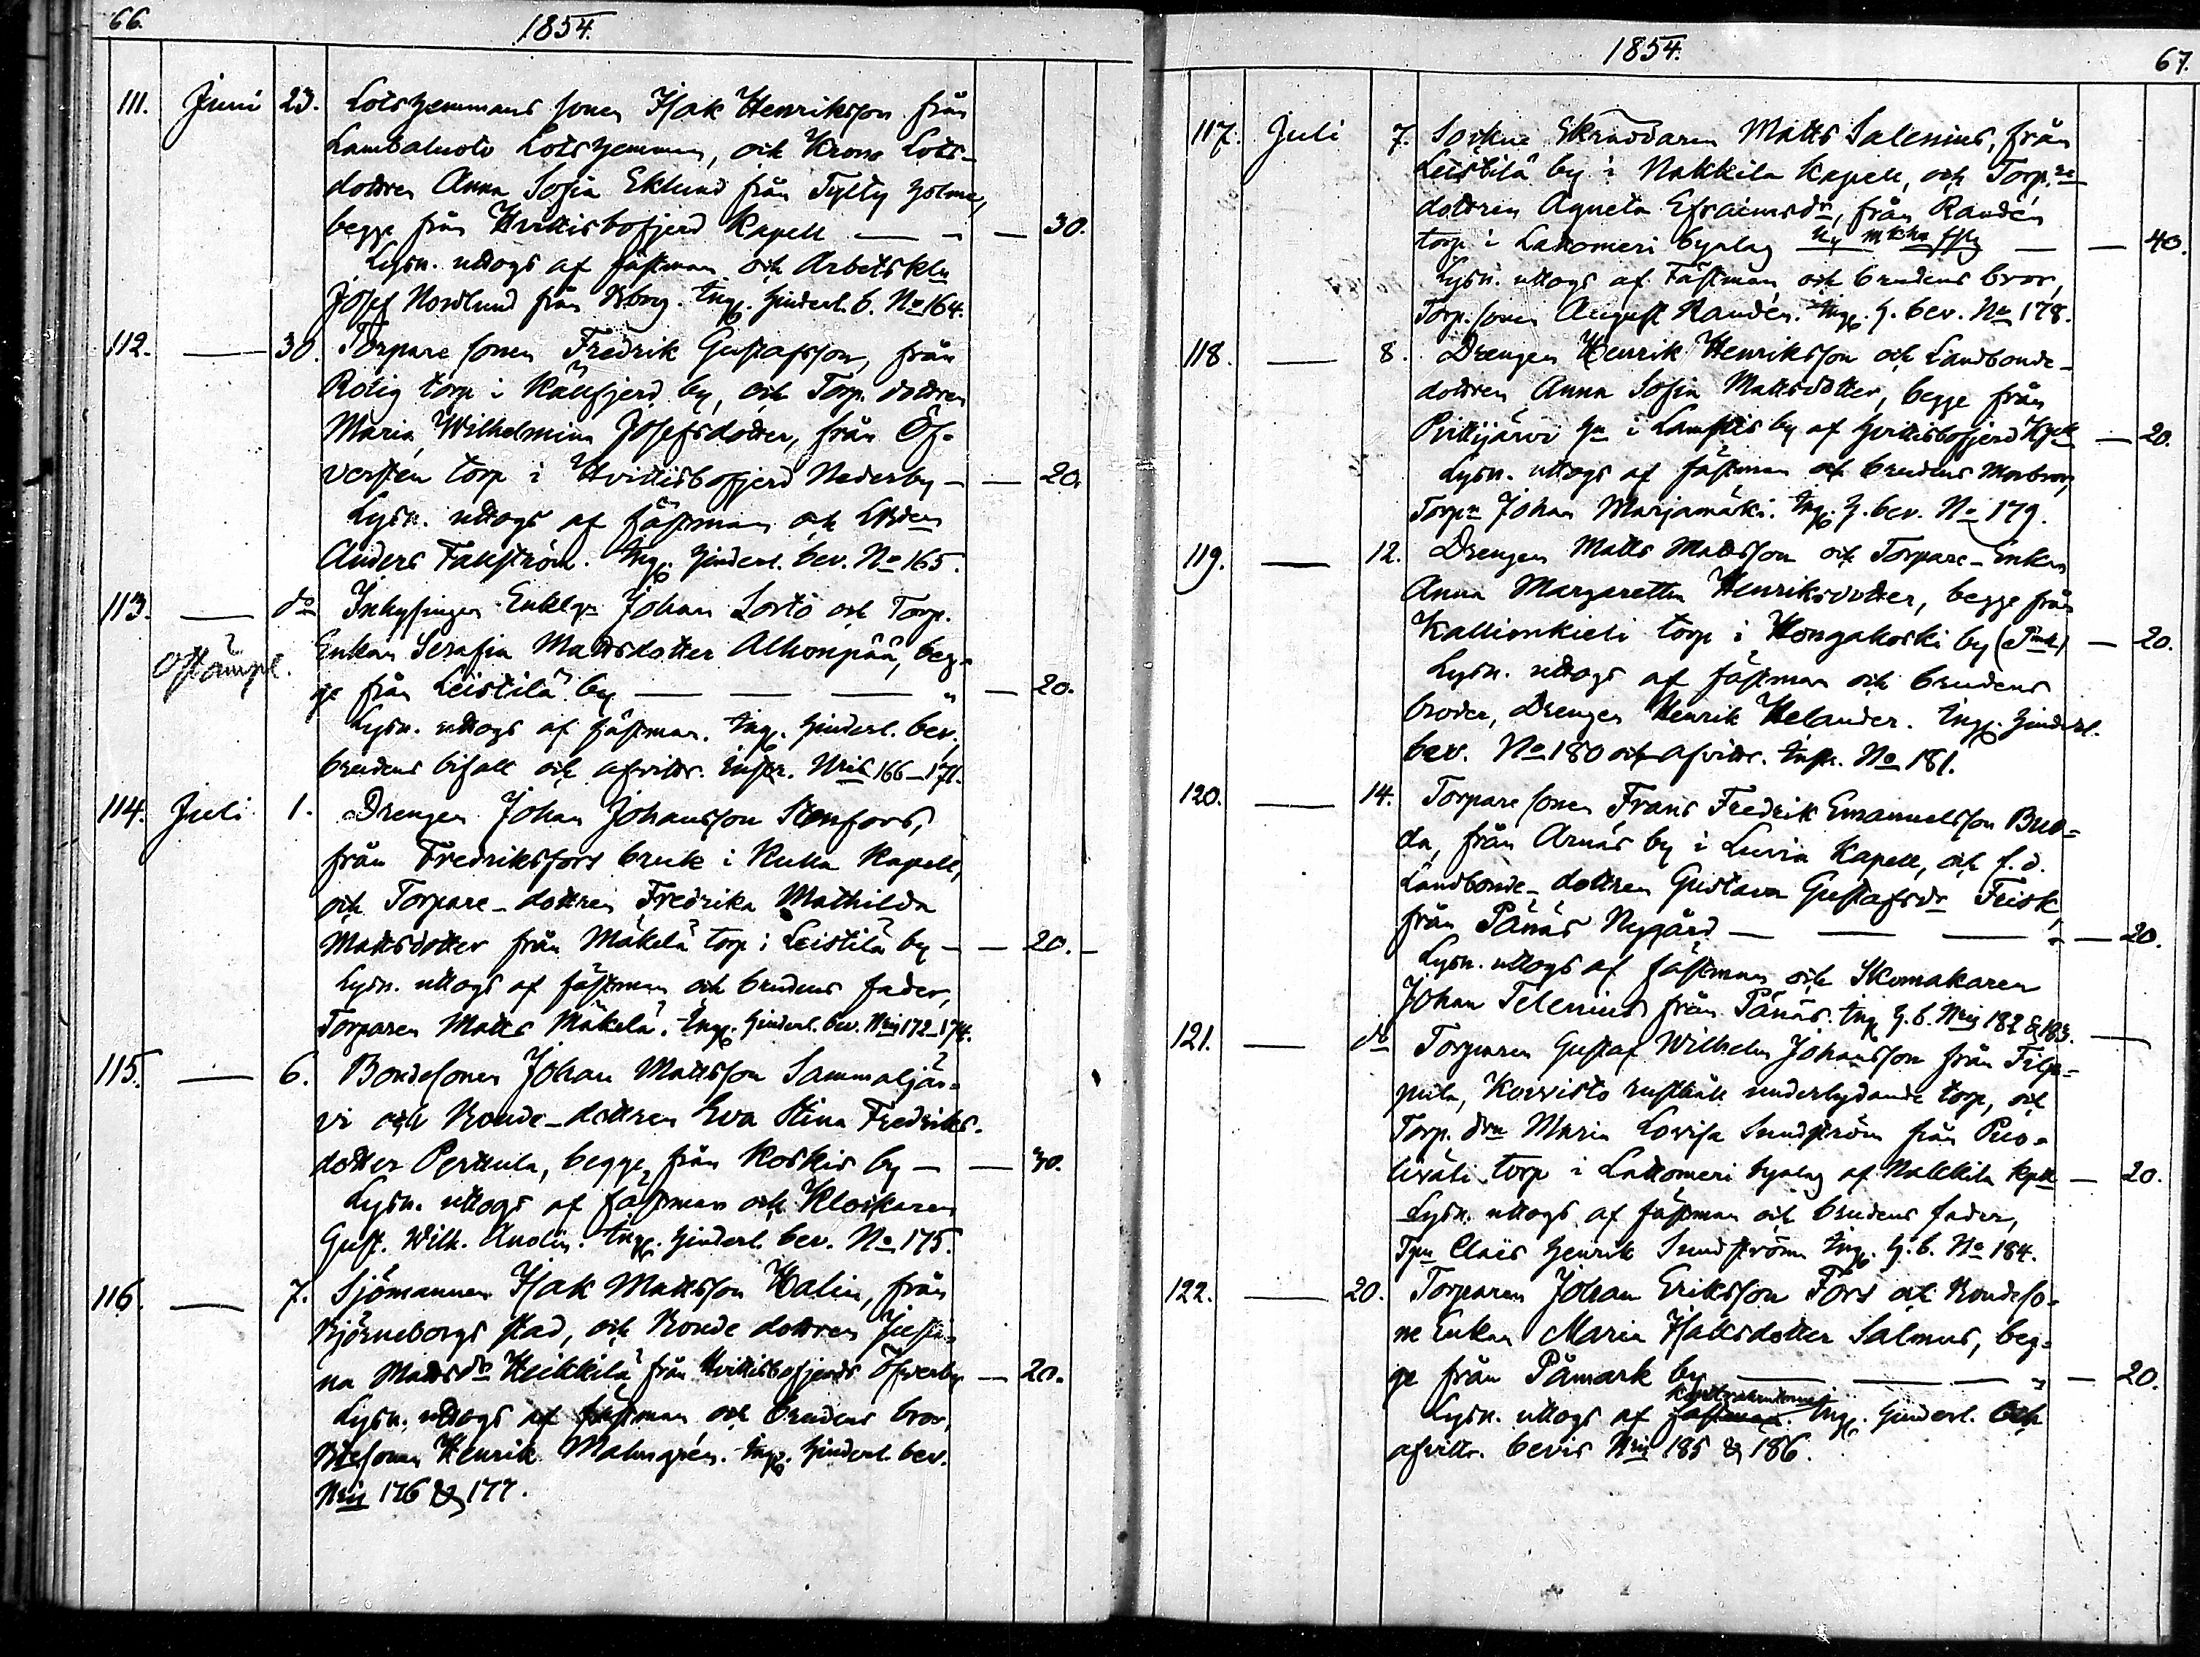 66.
1854.
111. Juni 23. Lotshemmans sonen Isak Henriksson från
Lambaluoto Lotshemman, och Krono Lots-
dottren Anna Sofia Eklund från Tylty holme,
begge från Hvittisbofjerd Kapell — " — 30.
Lysn. uttogs af fästman och Arbetskln
Josef Nordlund från Bborg. Ingg. hinderl. b. No 164.
112. — 30. Torpare sonen Fredrik Gustafsson, från
Rolig torp i Källfjerd by, och Torp. dottren
Maria Wilhelmina Josefsdotter, från Öf-
versten torp i Hvittisbofjerd Nederby — — 20.
Lysn. uttogs af fästman och
Anders Fakström. Ingg. hinderl. bev. No 165.
113. — do Inhysingen Enkl. Johan Sorto och Torp.
Enkan Serafia Mattsdotter Alhonpää, beg-
Ostämpl. ge från Leistilä by — — — " — 20.
Lysn. uttogs af fästman. Ingg. hinderl. bev.,
brudens bifall och afvittr. Instr. Nris 166–171.
114. Juli 1. Drengen Johan Johansson Stenfors,
från Fredriksfors bruk i Kulla Kapell,
och Torpare-dottren Fredrika Mathilda
Mattsdotter från Mäkelä torp i Leistilä by — — 20. –
Lysn. uttogs af fästman och brudens fader,
Torparen Matts Mäkelä. Ingg. hinderl. bev. Nris 172–174.
115. — 6. Bondesonen Johan Mattsson Sammaljär-
vi och Bonde-dottren Eva Stina Fredriks-
dotter Perttula, begge från Koskis by — — 30.
Lysn. uttogs af fästman och Klockaren
Gust. Wilh. Anolin. Ingg. hinderl. bev. No 175.
116. — 7. Sjömannen Isak Mattsson Halin, från
Björneborgs stad, och Bonde dottren Justi-
na Mattsdr Heikkilä från Hvittisbofjerds Öfverby — 20.
Lysn. uttogs af fästman och brudens bror,
Bdesonen Henrik Malmgrén. Ingg. hinderl. bev.
Nris 176 & 177.
1854.
67.
117. Juli 7. Sockne Skräddaren Matts Salenius, från
Leistilä by i Nakkila Kapell, och Torp.re
dottren Agneta Efraimsdr, från Randén
torp i Lattomeri byalag — — 40.
Lysn. uttogs af Fästman och brudens bror,
Torp. sonen August Randén. Ingg. h. bev. No 178.
118. — 8. Drengen Henrik Henriksson och Landbonde-
dottren Anna Sofia Mattsdotter, begge från
Pirttijärvi hn i Lamptis by af Hvittisbofjerd Kpell — 20.
Lysn. uttogs af fästman och brudens Morbror,
Torpn Johan Marjamäki. Ingg. h. bev. No 179.
119. — 12. Drengen Matts Mattsson och Torpare-Enkan
Anna Margaretha Henriksdotter, begge från
Kallionkieli torp i Hongakoski by — 20.
Lysn. uttogs af fästman och brudens
broder, Drengen Henrik Helander. Ingg. hinderl.
bev. No 180 och afvittr. Instr. No 181.
120. — 14. Torpare sonen Frans Fredrik Emanuelsson Buo-
da, från Arnäs by i Luvia Kapell, och f. d.
Landbonde-dottren Gustava Gustafsdr Frisk,
från Pänäs Nygård — — — " — 20.
Lysn. uttogs af fästman och Skomakaren
Johan Telenius från Pänäs. Ingg. h. b. Nris 182 & 183.
121. — do Torparen Gustaf Wilhelm Johansson från Filp-
pula, Korvisto rusthåll underlydande torp, och
Torp. drn Maria Lovisa Sundström från Puo-
liväli torp i Lattomeri byalag af Nakkila Kpll — 20.
Lysn. uttogs af fästman och brudens fader,
Tpn Claës Henrik Sundström. Ingg. h. b. No 184.
122. — 20. Torparen Johan Eriksson Fors och Bondeso-
ne Enkan Maria Isaksdotter Salmus, beg-
ge från Påmark by — — — " — 20.
kontrahenterne
Lysn. uttogs af fästman. Ingg. hinderl. och
afvittr. bevis Nris 185 & 186.